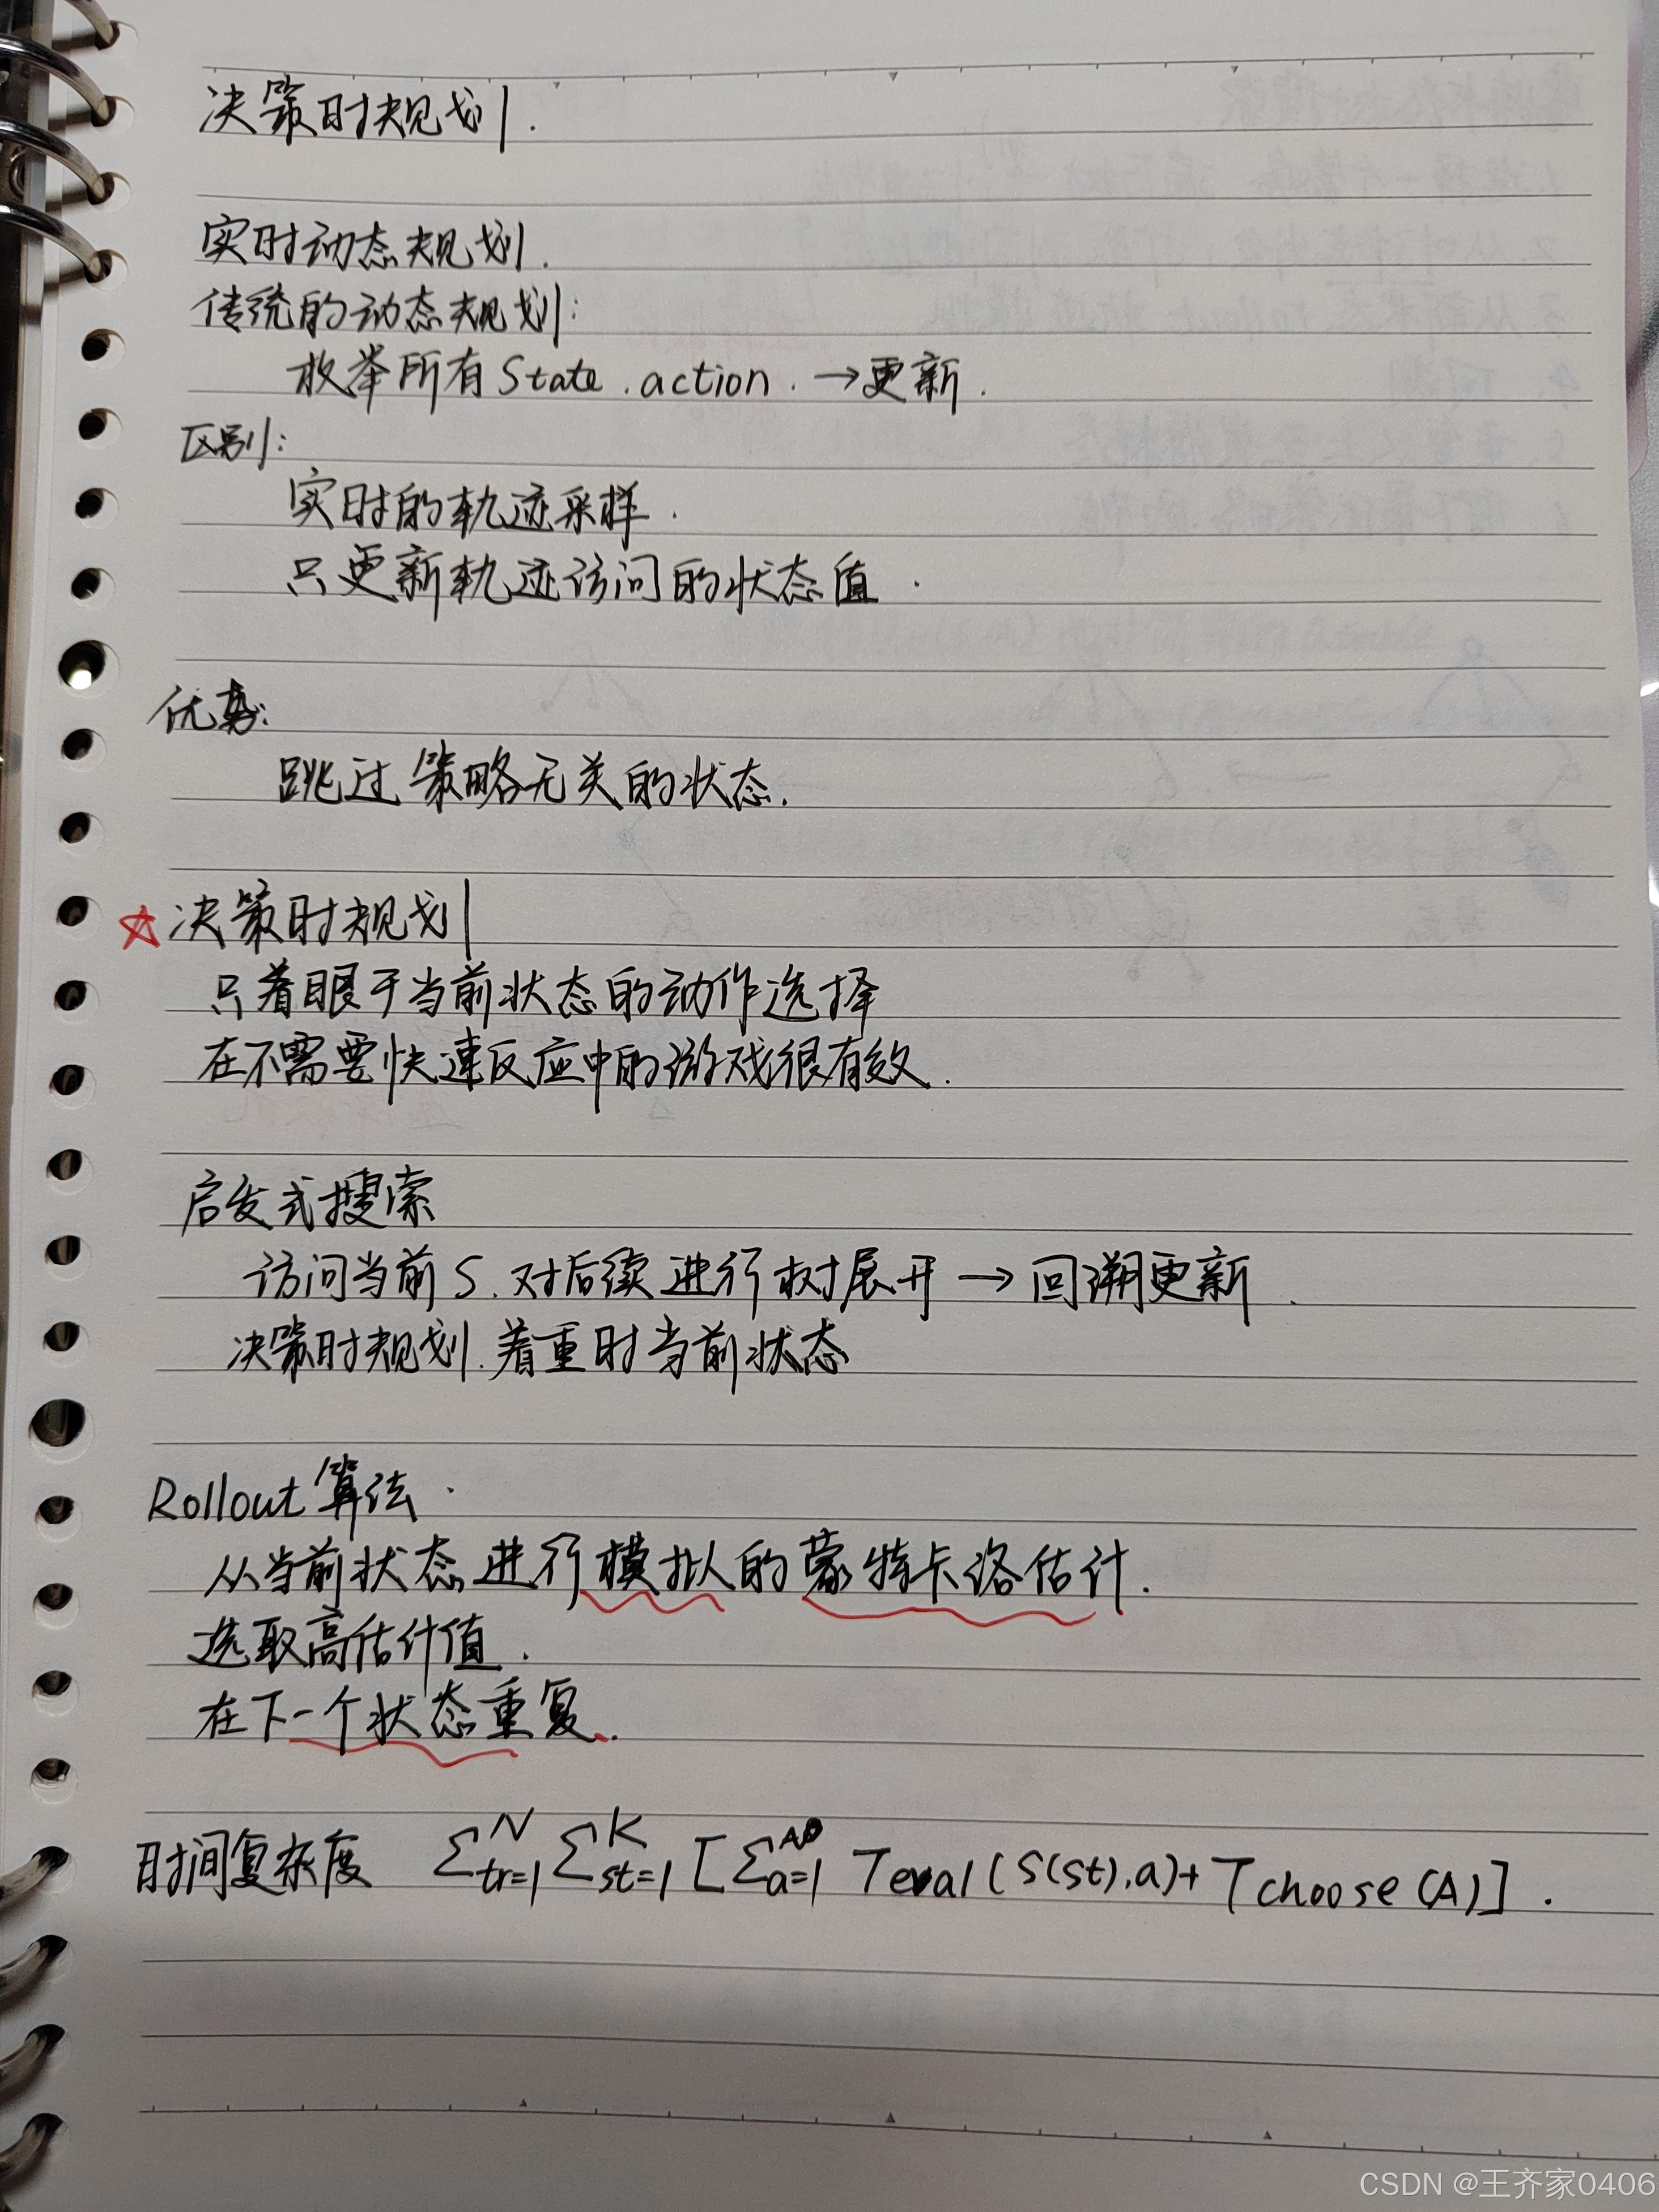 决策时规划.
实时动态规划.
传统的动态规划:
枚举所有State.action.→更新.
区别:
实时的轨迹采样.
只更新轨迹访问的状态值.
优势:
跳过策略无关的状态.
☆决策时规划
只着眼于当前状态的动作选择
在不需要快速反应中的游戏很有效.
启发式搜索
访问当前S.对后续进行树展开→回溯更新.
决策时规划.着重时当前状态
Rollout算法.
从当前状态进行模拟的蒙特卡洛估计.
选取高估计值.
在下一个状态重复.
时间复杂度 Σ_{tr=1}^{N} Σ_{st=1}^{K} [Σ_{a=1}^{A} Teval(S(st),a)+Tchoose(A)].
CSDN @王齐家0406